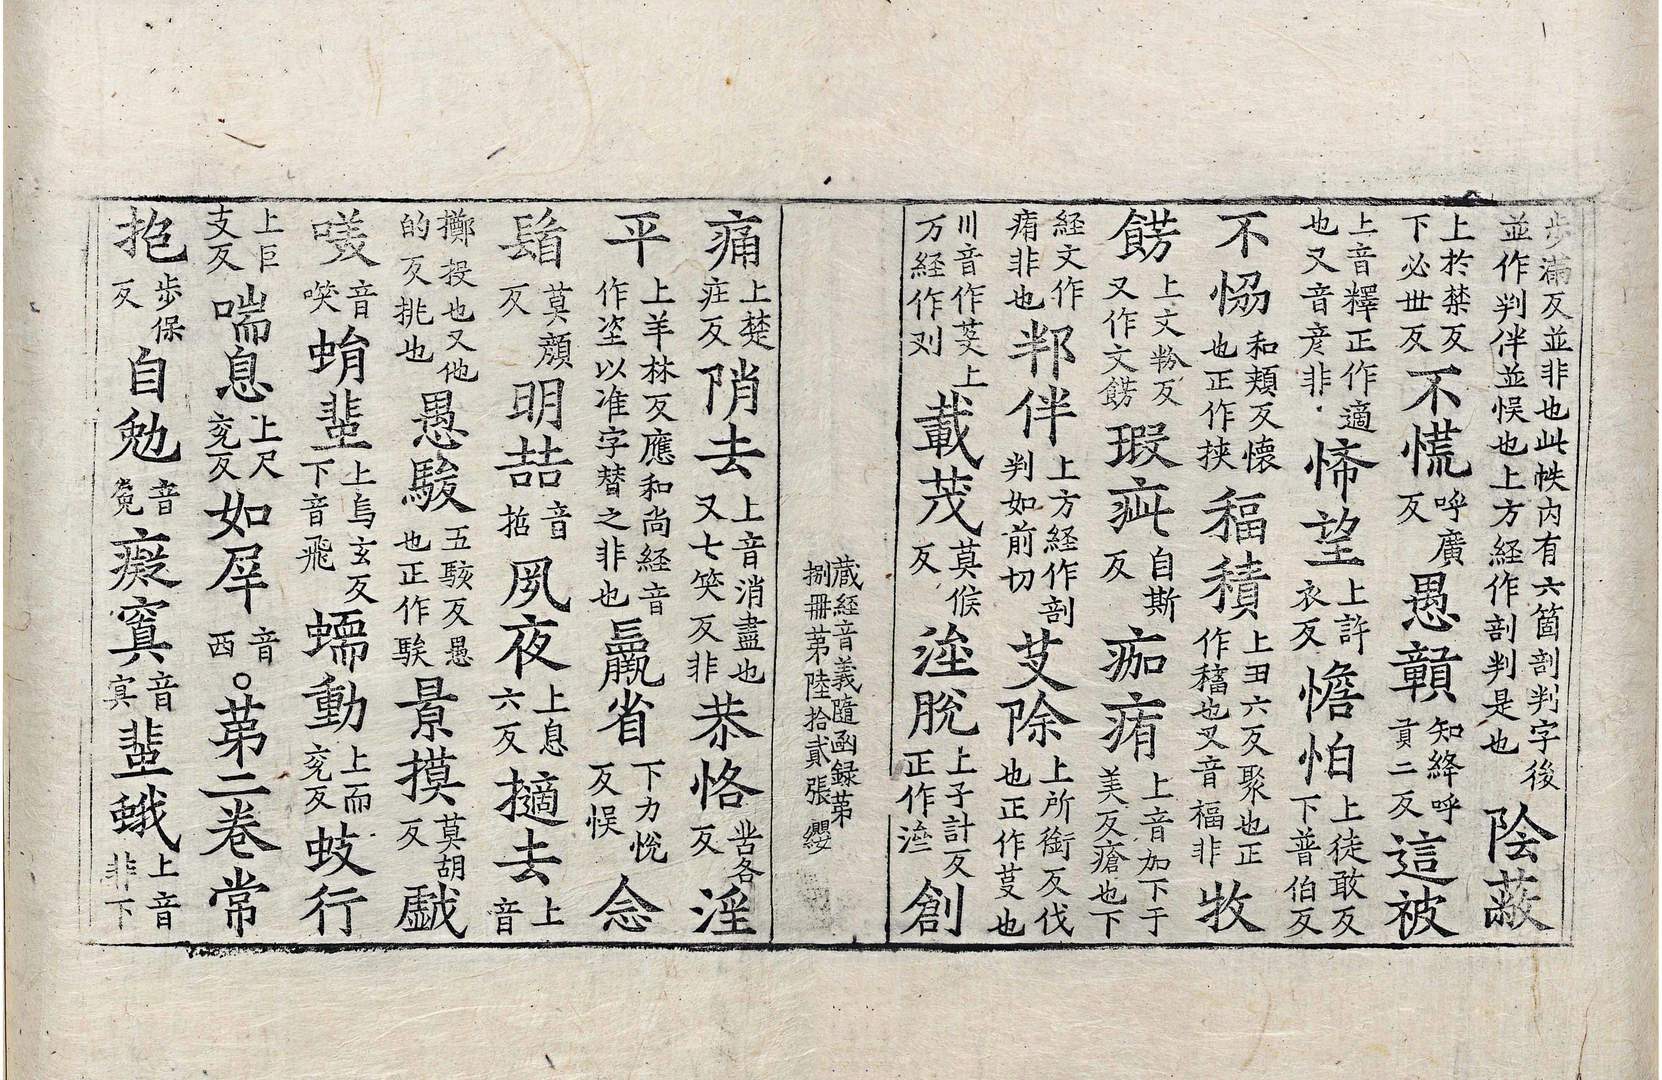 步滿反並非也此帙內有六箇剖判字後並作判伴並悮也上方經作剖判是也 陰蔽
上於禁反下必世反 不慌 呼廣反 愚戇 知絳呼貢二反 這被
上音釋正作適也又音彥非 悕望 上許衣反 憺怕 上徒敢反下普伯反
不恊 和頰反懷也正作挾 稫積 上丑六反聚也正作稸也又音福非 牧
餝 上文粉反又作文餝 瑕疵 自斯反 痂痏 上音加下于美反瘡也下
經文作痏非也 判伴 上方經作剖判如前切 芟除 上所銜反伐也正作芟也
川音作芟上万經作刈 載茂 莫候反 浤脫 上子計反正作 創
藏經音義隨函録第捌冊第陸拾貳張 纓
痛 上楚庄反 陗去 上音消盡也又七笑反非 恭恪 苦各反 淫
平 上羊林反應和尚經音作坙以准字替之非也 羸省 下力悅反悮 念
髫 莫顏反 明喆 音哲 夙夜 上息六反 擿去 上音
擲投也又他的反挑也 愚駿 五駭反愚也正作騃 景摸 莫胡反 戱
唉 音喚 蜎蜚 上烏玄反下音飛 蠕動 上而兖反 蚑行
上巨支反 喘息 上尺兖反 如犀 音西 。第二卷 常
抱 步保反 自勉 音免 癡寘 音寘 蜚蛾 上音非下